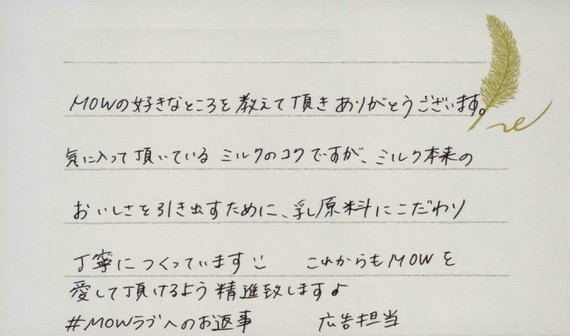 MOWの好きなところを教えて頂きありがとうございます。
気に入って頂いているミルクのコクですが、ミルク本来の
おいしさを引き出すために、乳原料にこだわり
丁寧につくっています これからもMOWを
愛して頂けるよう精進致します♪
#MOWラブへのお返事 広告担当